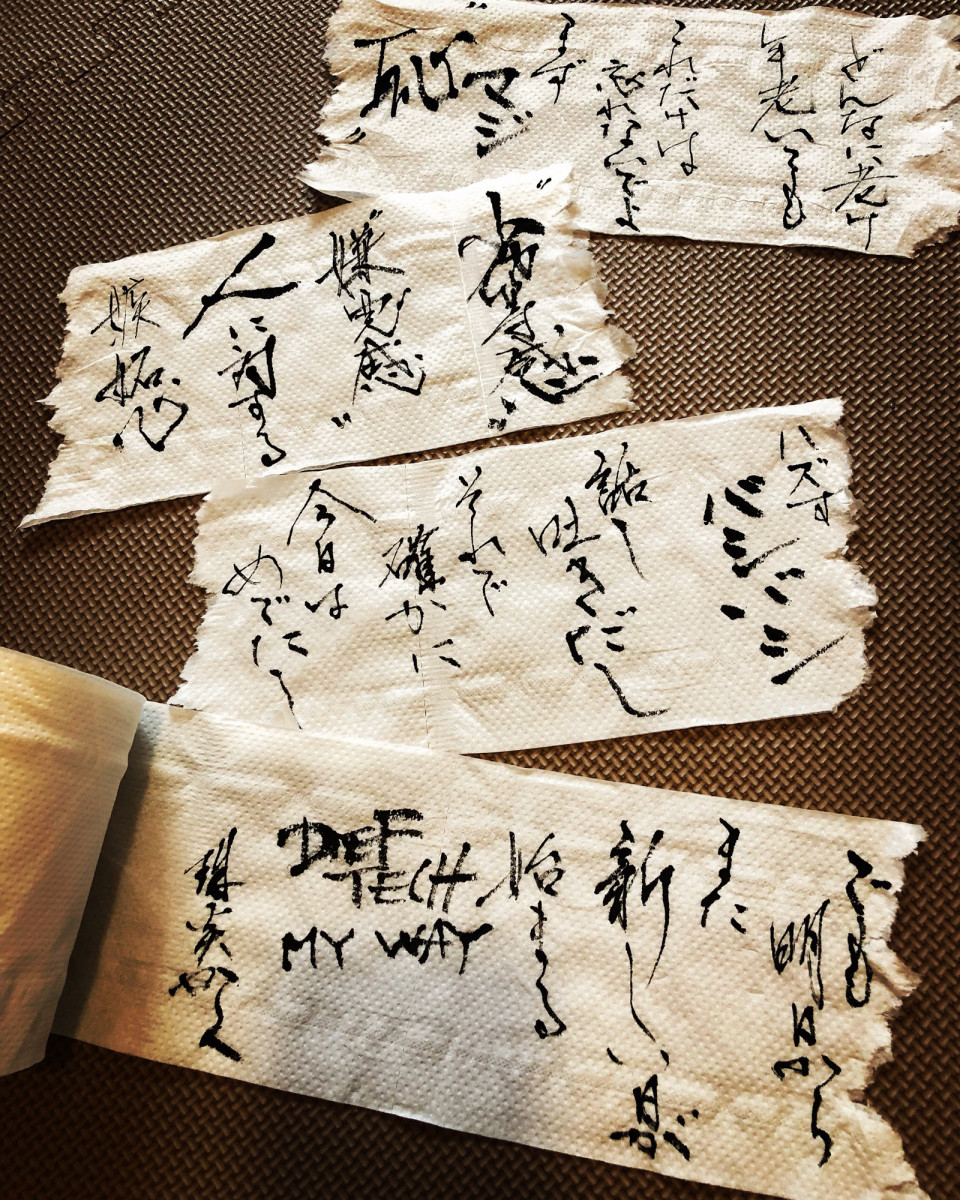 どんなに老け
年老いても
これだけは
忘れないでよ
まず
"マジ
恥"
"嫌悪感"
人に対する
嫉妬心
ハズす
バシバシ
話し
吐きだし
それで
確かに
今日は
めでたし
でも
明日から
また
新しい日が
始まる
DEF
TECH
MY WAY